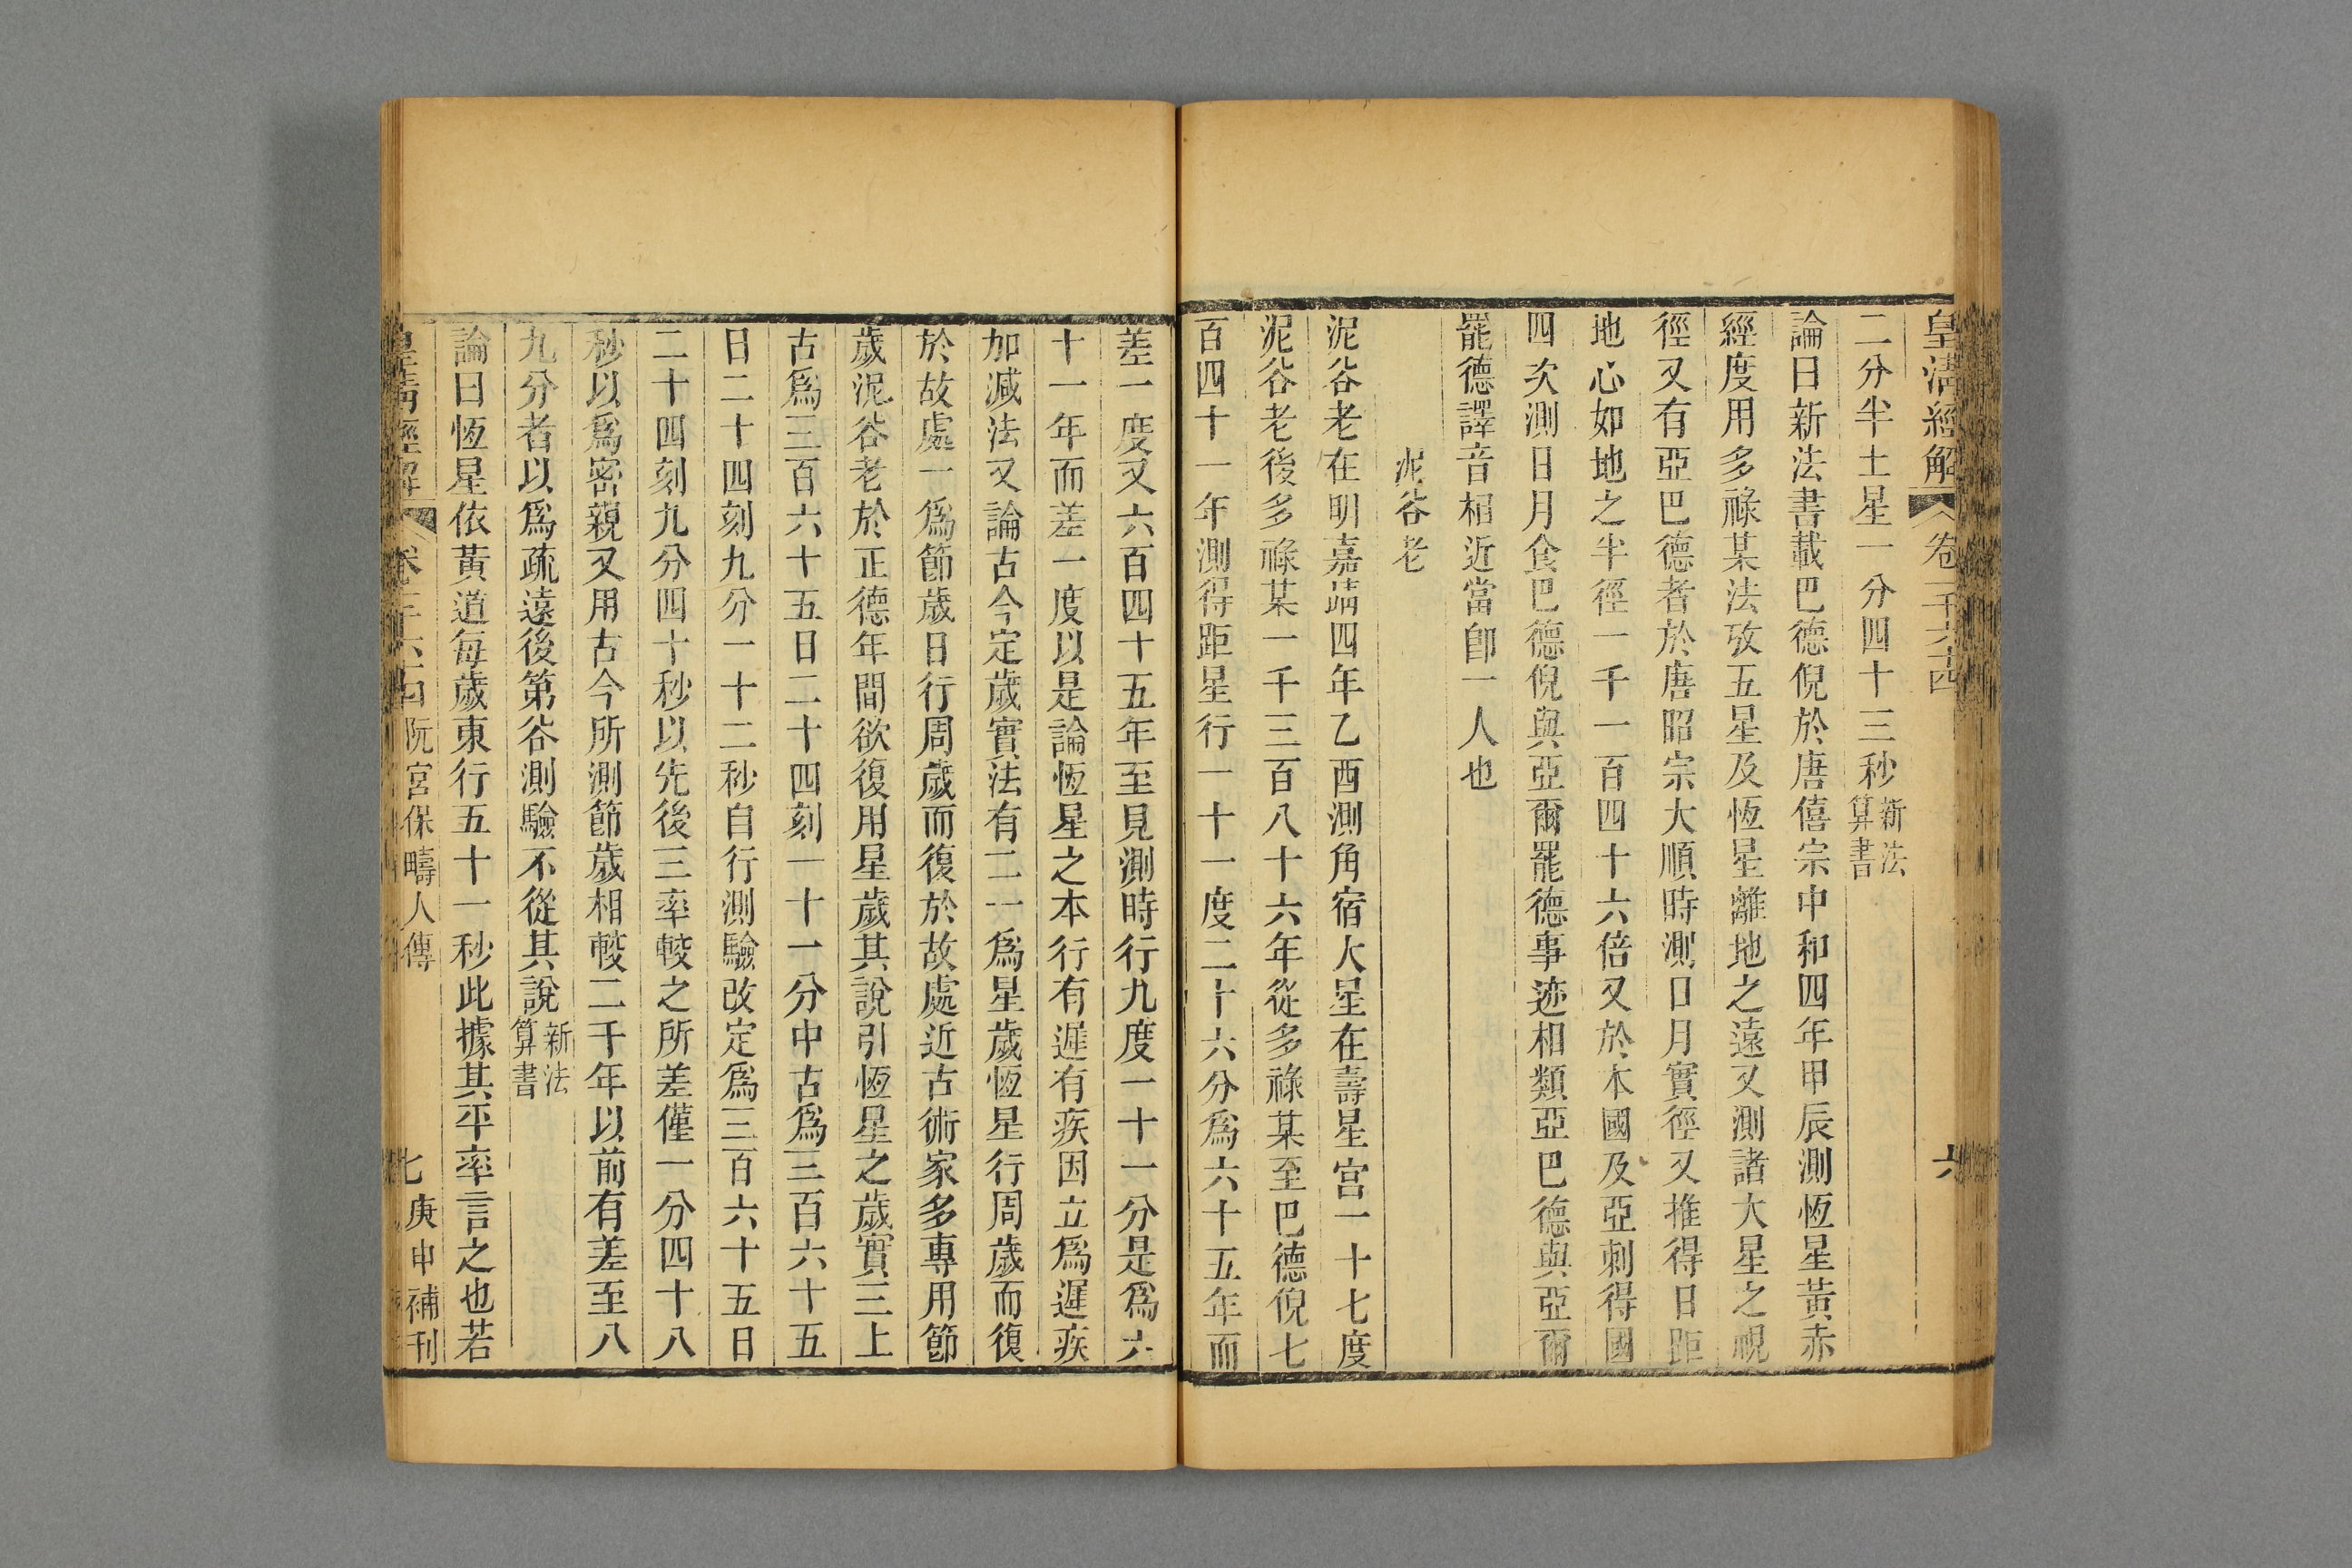 皇淸經解 卷一千六十四 六
二分半土星一分四十三秒新法算書
論曰新法書載巴德倪於唐僖宗中和四年甲辰測恆星黃赤
經度用多祿某法攷五星及恆星離地之遠又測諸大星之視
徑又有亞巴德者於唐昭宗大順時測日月實徑又推得日距
地心如地之半徑一千一百四十六倍又於本國及亞刺得國
四次測日月食巴德倪與亞爾罷德事迹相類亞巴德與亞爾
罷德譯音相近當卽一人也
泥谷老
泥谷老在明嘉靖四年乙酉測角宿大星在壽星宮一十七度
泥谷老後多祿某一千三百八十六年從多祿某至巴德倪七
百四十一年測得距星行一十一度二十六分爲六十五年而
差一度又六百四十五年至見測時行九度一十一分是爲六
十一年而差一度以是論恆星之本行有遲有疾因立爲遲疾
加減法又論古今定歲實法有二一爲星歲恆星行周歲而復
於故處一爲節歲日行周歲而復於故處近古術家多專用節
歲泥谷老於正德年間欲復用星歲其說引恆星之歲實三上
古爲三百六十五日二十四刻一十一分中古爲三百六十五
日二十四刻九分一十二秒自行測驗改定爲三百六十五日
二十四刻九分四十秒以先後三率較之所差僅一分四十八
秒以爲密親又用古今所測節歲相較二千年以前有差至八
九分者以爲疏遠後第谷測驗不從其說新法算書
論曰恆星依黃道每歲東行五十一秒此據其平率言之也若
皇淸經解 卷一千六十四 阮宮保疇人傳 七 庚申補刊